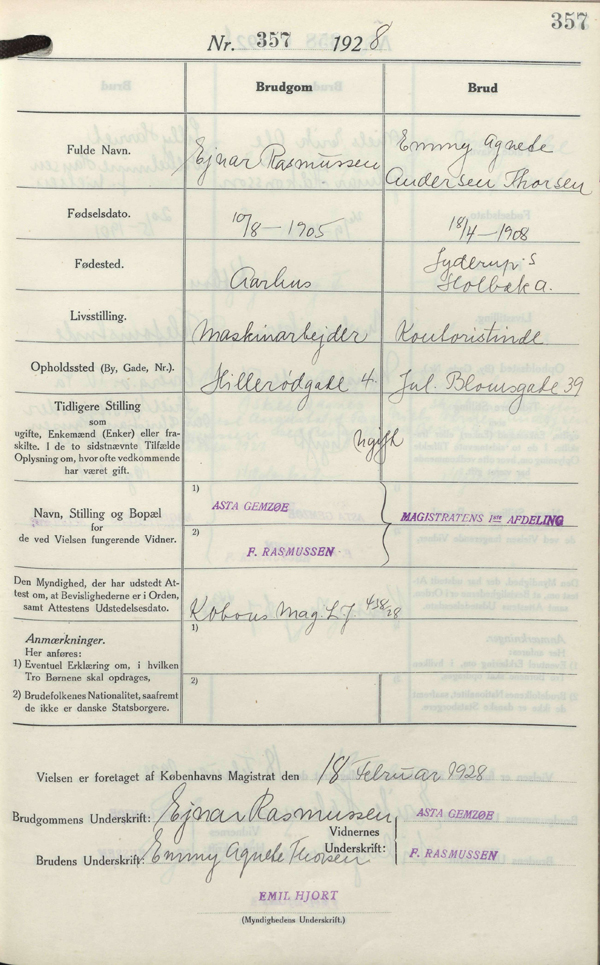 357
Nr. 357 1928
Brudgom Brud
Fulde Navn. Ejnar Rasmussen Emmy Agnede
Andersen Thorsen
Fødselsdato. 10/8 — 1905 18/4 — 1908
Fødested. Aarhus Jyderup S
Holbæk a.
Livsstilling. Maskinarbejder Kontoristinde
Opholdssted (By, Gade, Nr.). Hillerødgade 4. Jul. Blomsgade 39
Tidligere Stilling
som
ugifte, Enkemænd (Enker) eller fra-
skilte. I de to sidstnævnte Tilfælde
Oplysning om, hvor ofte vedkommende
har været gift.
ugift
Navn, Stilling og Bopæl
for
de ved Vielsen fungerende Vidner.
1)
ASTA GEMZØE
2)
F. RASMUSSEN
MAGISTRATENS 1ste AFDELING
Den Myndighed, der har udstedt At-
test om, at Bevislighederne er i Orden,
samt Attestens Udstedelsesdato.
Kbhvns Mag LJ 438/28
Anmærkninger.
Her anføres:
1) Eventuel Erklæring om, i hvilken
Tro Børnene skal opdrages,
2) Brudefolkenes Nationalitet, saafremt
de ikke er danske Statsborgere.
1)
2)
Vielsen er foretaget af Københavns Magistrat den 18 Februar 1928
Brudgommens Underskrift: Ejnar Rasmussen
Brudens Underskrift: Emmy Agnete Thorsen
Vidnernes
Underskrift:
ASTA GEMZØE
F. RASMUSSEN
EMIL HJORT
(Myndighedens Underskrift.)